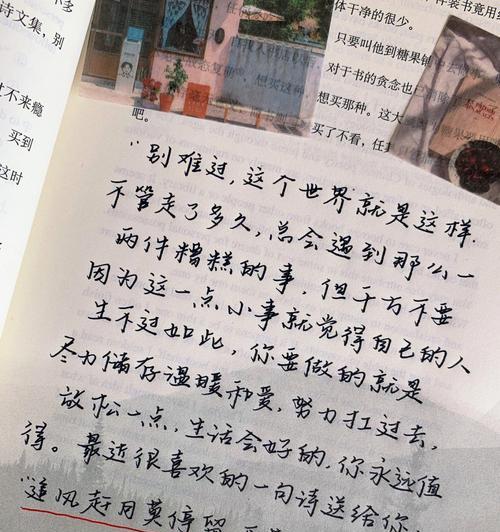 诗文集，别
买到
这时
体干净的很少。
对于书的贪念也
想买那种。这大
买了不看，任其
吧。
"别难过，这个世界就是这样，
不管走了多久，总会遇到那么一
两件糟糕的事，但千万不要
因为这一点小事就觉得自己的人
生不过如此，你要做的就是
尽力储存温暖和爱，努力扛过去，
放松一点，生活会好的，你永远值
得。最近很喜欢的一句诗送给你：
"追风赶月莫停留